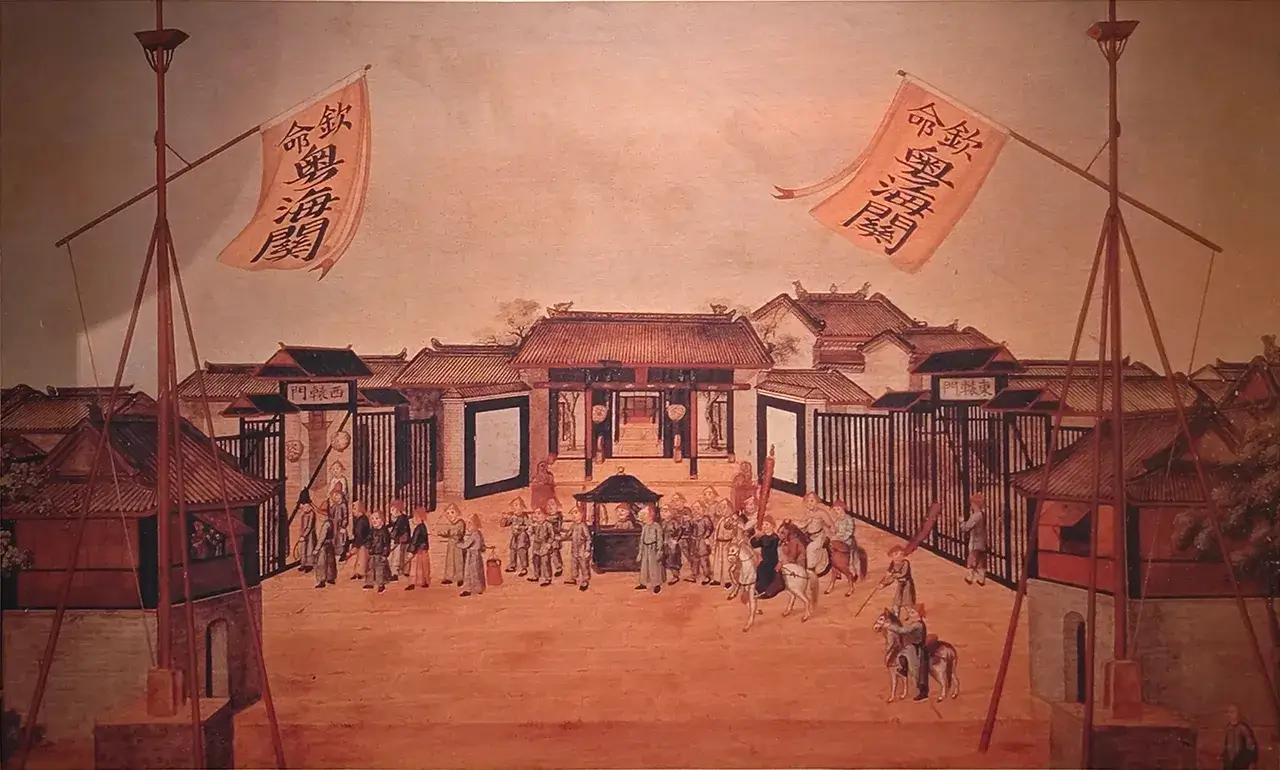 欽命
粤海關
欽命
粤海關
西轅門
東轅門